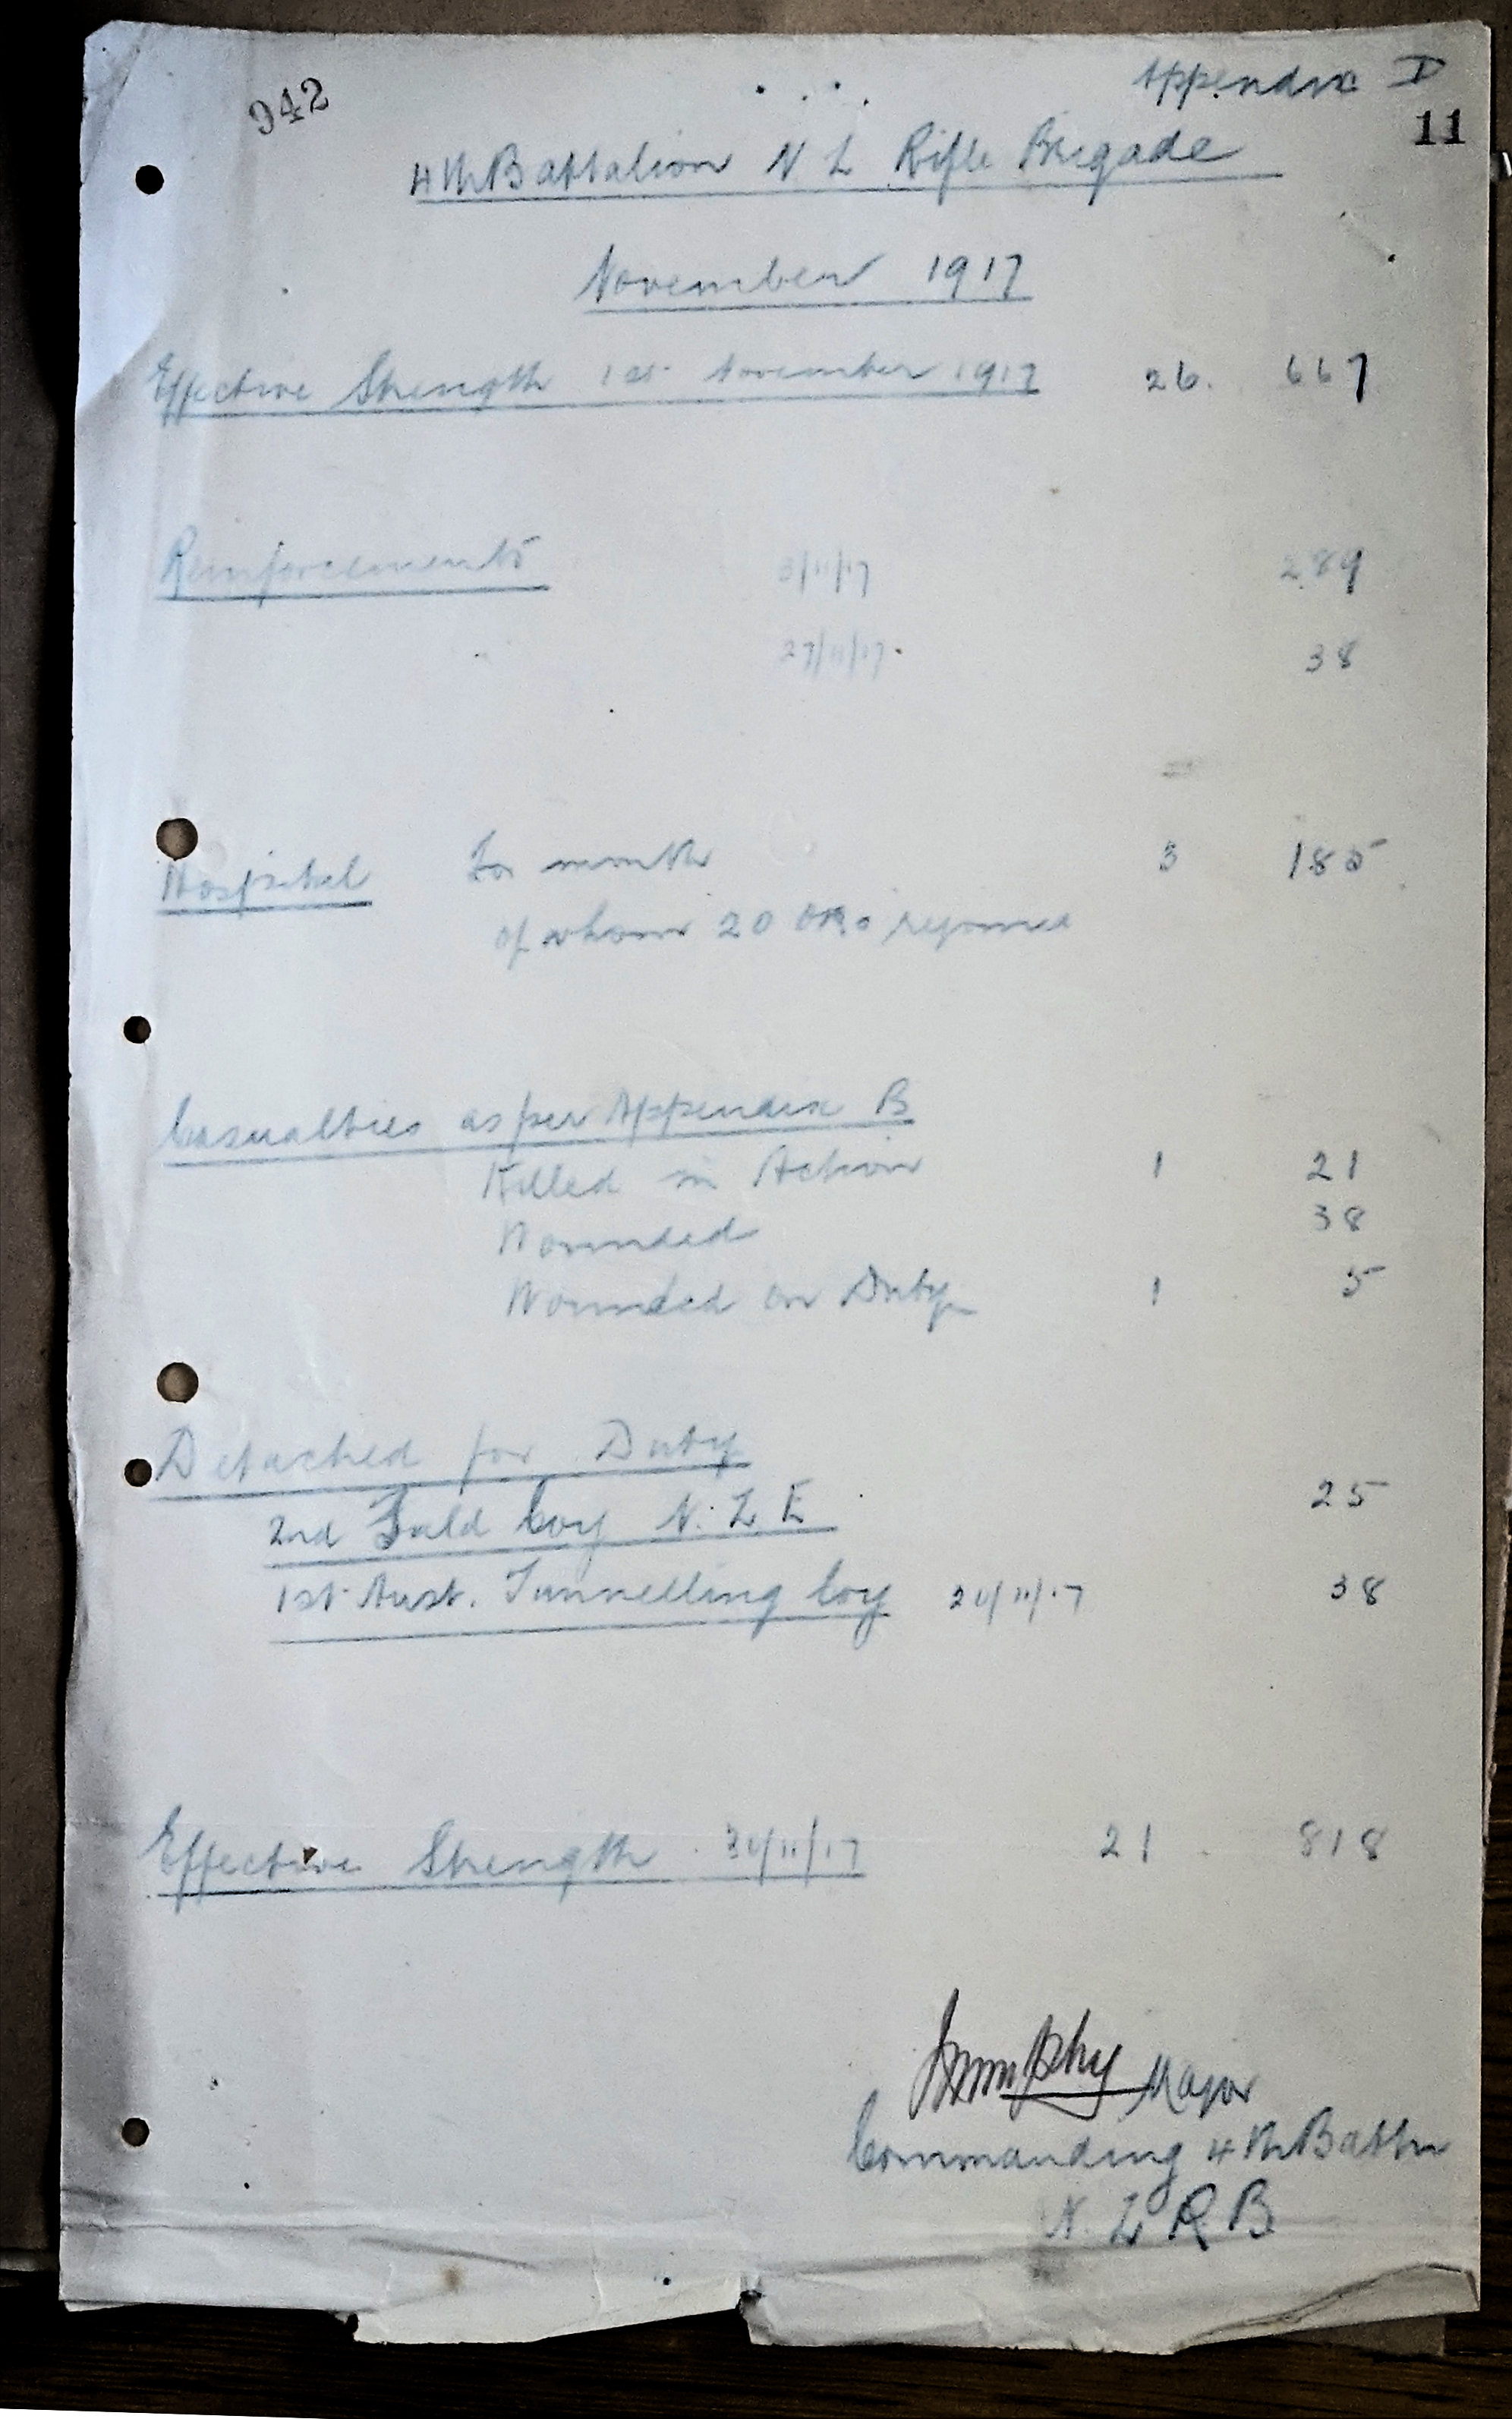 942
Appendix D
11
4th Battalion N Z Rifle Brigade
November 1917
Effective Strength 1st November 1917 26. 667
Reinforcements 3/11/17 289
27/11/17. 38
Hospital For month 3 185
of whom 20 ORs rejoined
Casualties as per Appendix B
Killed in Action 1 21
Wounded 38
Wounded on Duty 1 5
Detached for Duty
2nd Field Coy N. Z E 25
1st Aust. Tunnelling Coy 20/11/17 38
Effective Strength 30/11/17 21 818
Major
Commanding 4th Battn
N. Z R B